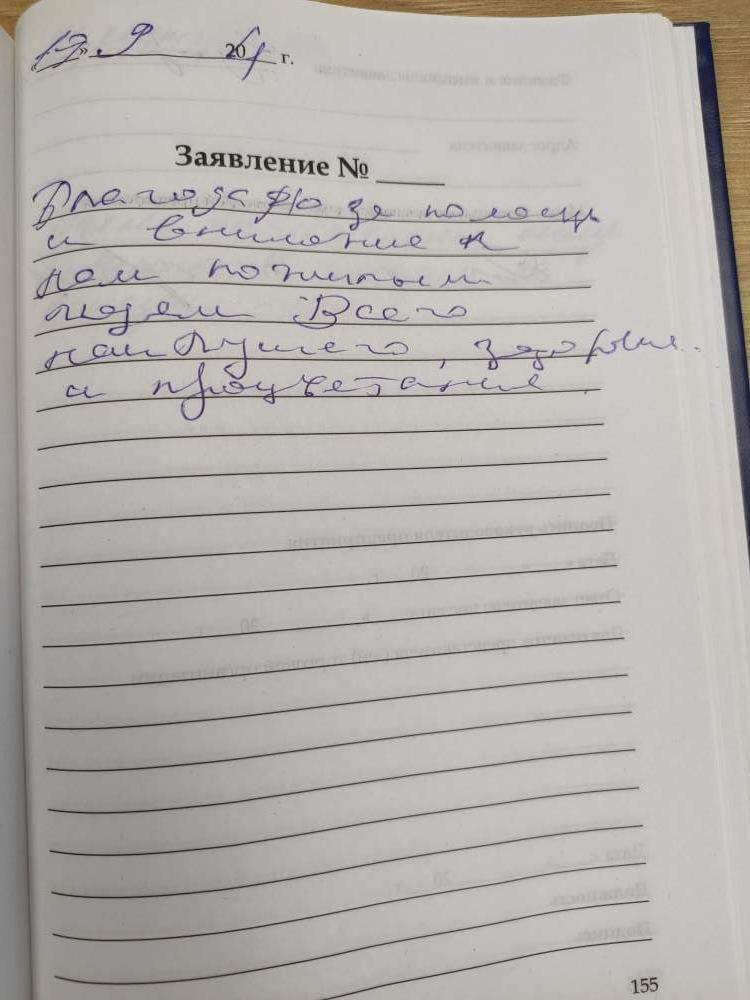 17 » 9 20 г.
Заявление №
Благодарю за помощь
и внимание к
нам пожилым
людям Всего
наилучшего, здоровья
и процветания.
155